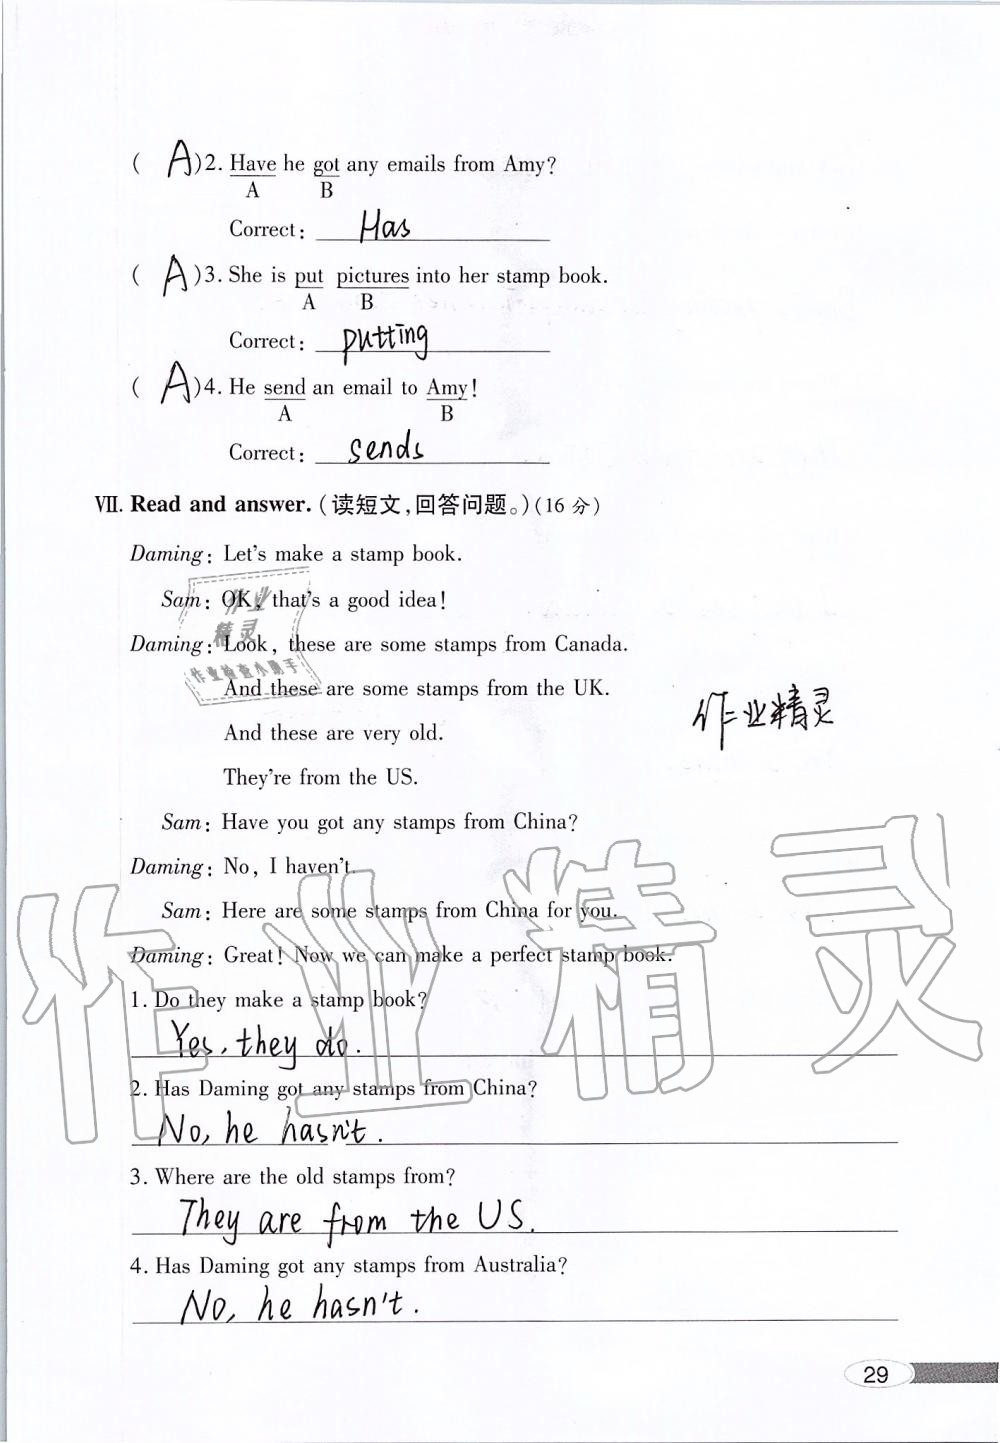 ( A )2. Have he got any emails from Amy?
A B
Correct: Has
( A )3. She is put pictures into her stamp book.
A B
Correct: putting
( A )4. He send an email to Amy!
A B
Correct: sends
Ⅶ. Read and answer.(读短文,回答问题。)(16 分)
Daming: Let's make a stamp book.
Sam: OK, that's a good idea!
Daming: Look, these are some stamps from Canada.
And these are some stamps from the UK.
And these are very old.
They're from the US.
Sam: Have you got any stamps from China?
Daming: No, I haven't.
Sam: Here are some stamps from China for you.
Daming: Great! Now we can make a perfect stamp book.
1. Do they make a stamp book?
Yes, they do.
2. Has Daming got any stamps from China?
No, he hasn't.
3. Where are the old stamps from?
They are from the US.
4. Has Daming got any stamps from Australia?
No, he hasn't.
作业精灵
作业
精灵
作业检查小助手
作业精灵
29